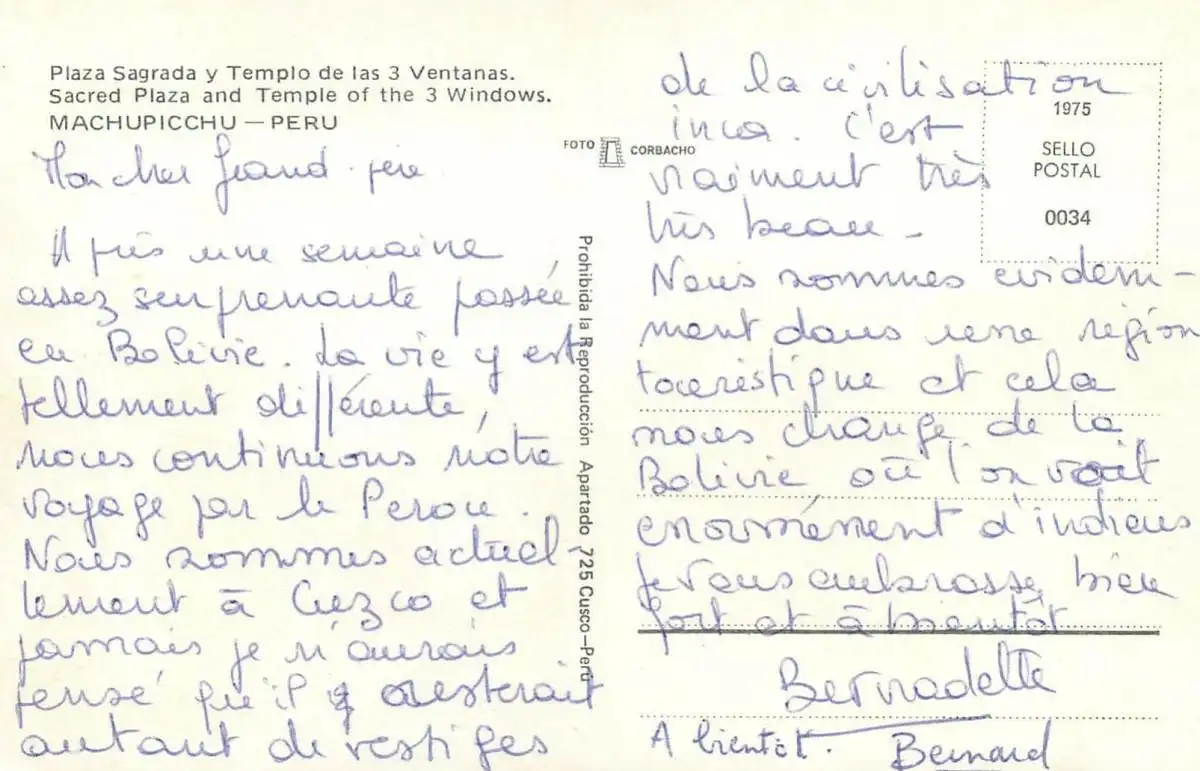 Plaza Sagrada y Templo de las 3 Ventanas.
Sacred Plaza and Temple of the 3 Windows.
MACHUPICCHU — PERU
FOTO CORBACHO
Mon cher Grand-père
Après une semaine
assez surprenante passée
en Bolivie. La vie y est
tellement différente,
nous continuons notre
voyage par le Perou.
Nous sommes actuel-
lement à Cuzco et
jamais je n'aurais
pensé qu'il y resterait
autant de vestiges
Prohibida la Reproducción Apartado 725 Cusco—Perú
de la civilisation
inca. C'est
vraiment très
très beau -
Nous sommes evidem-
ment dans une région
touristique et cela
nous change de la
Bolivie, où l'on voit
enormément d'indiens
Je vous embrasse bien
fort et à bientôt
Bernadette
A bientôt. Bernard
1975
SELLO
POSTAL
0034